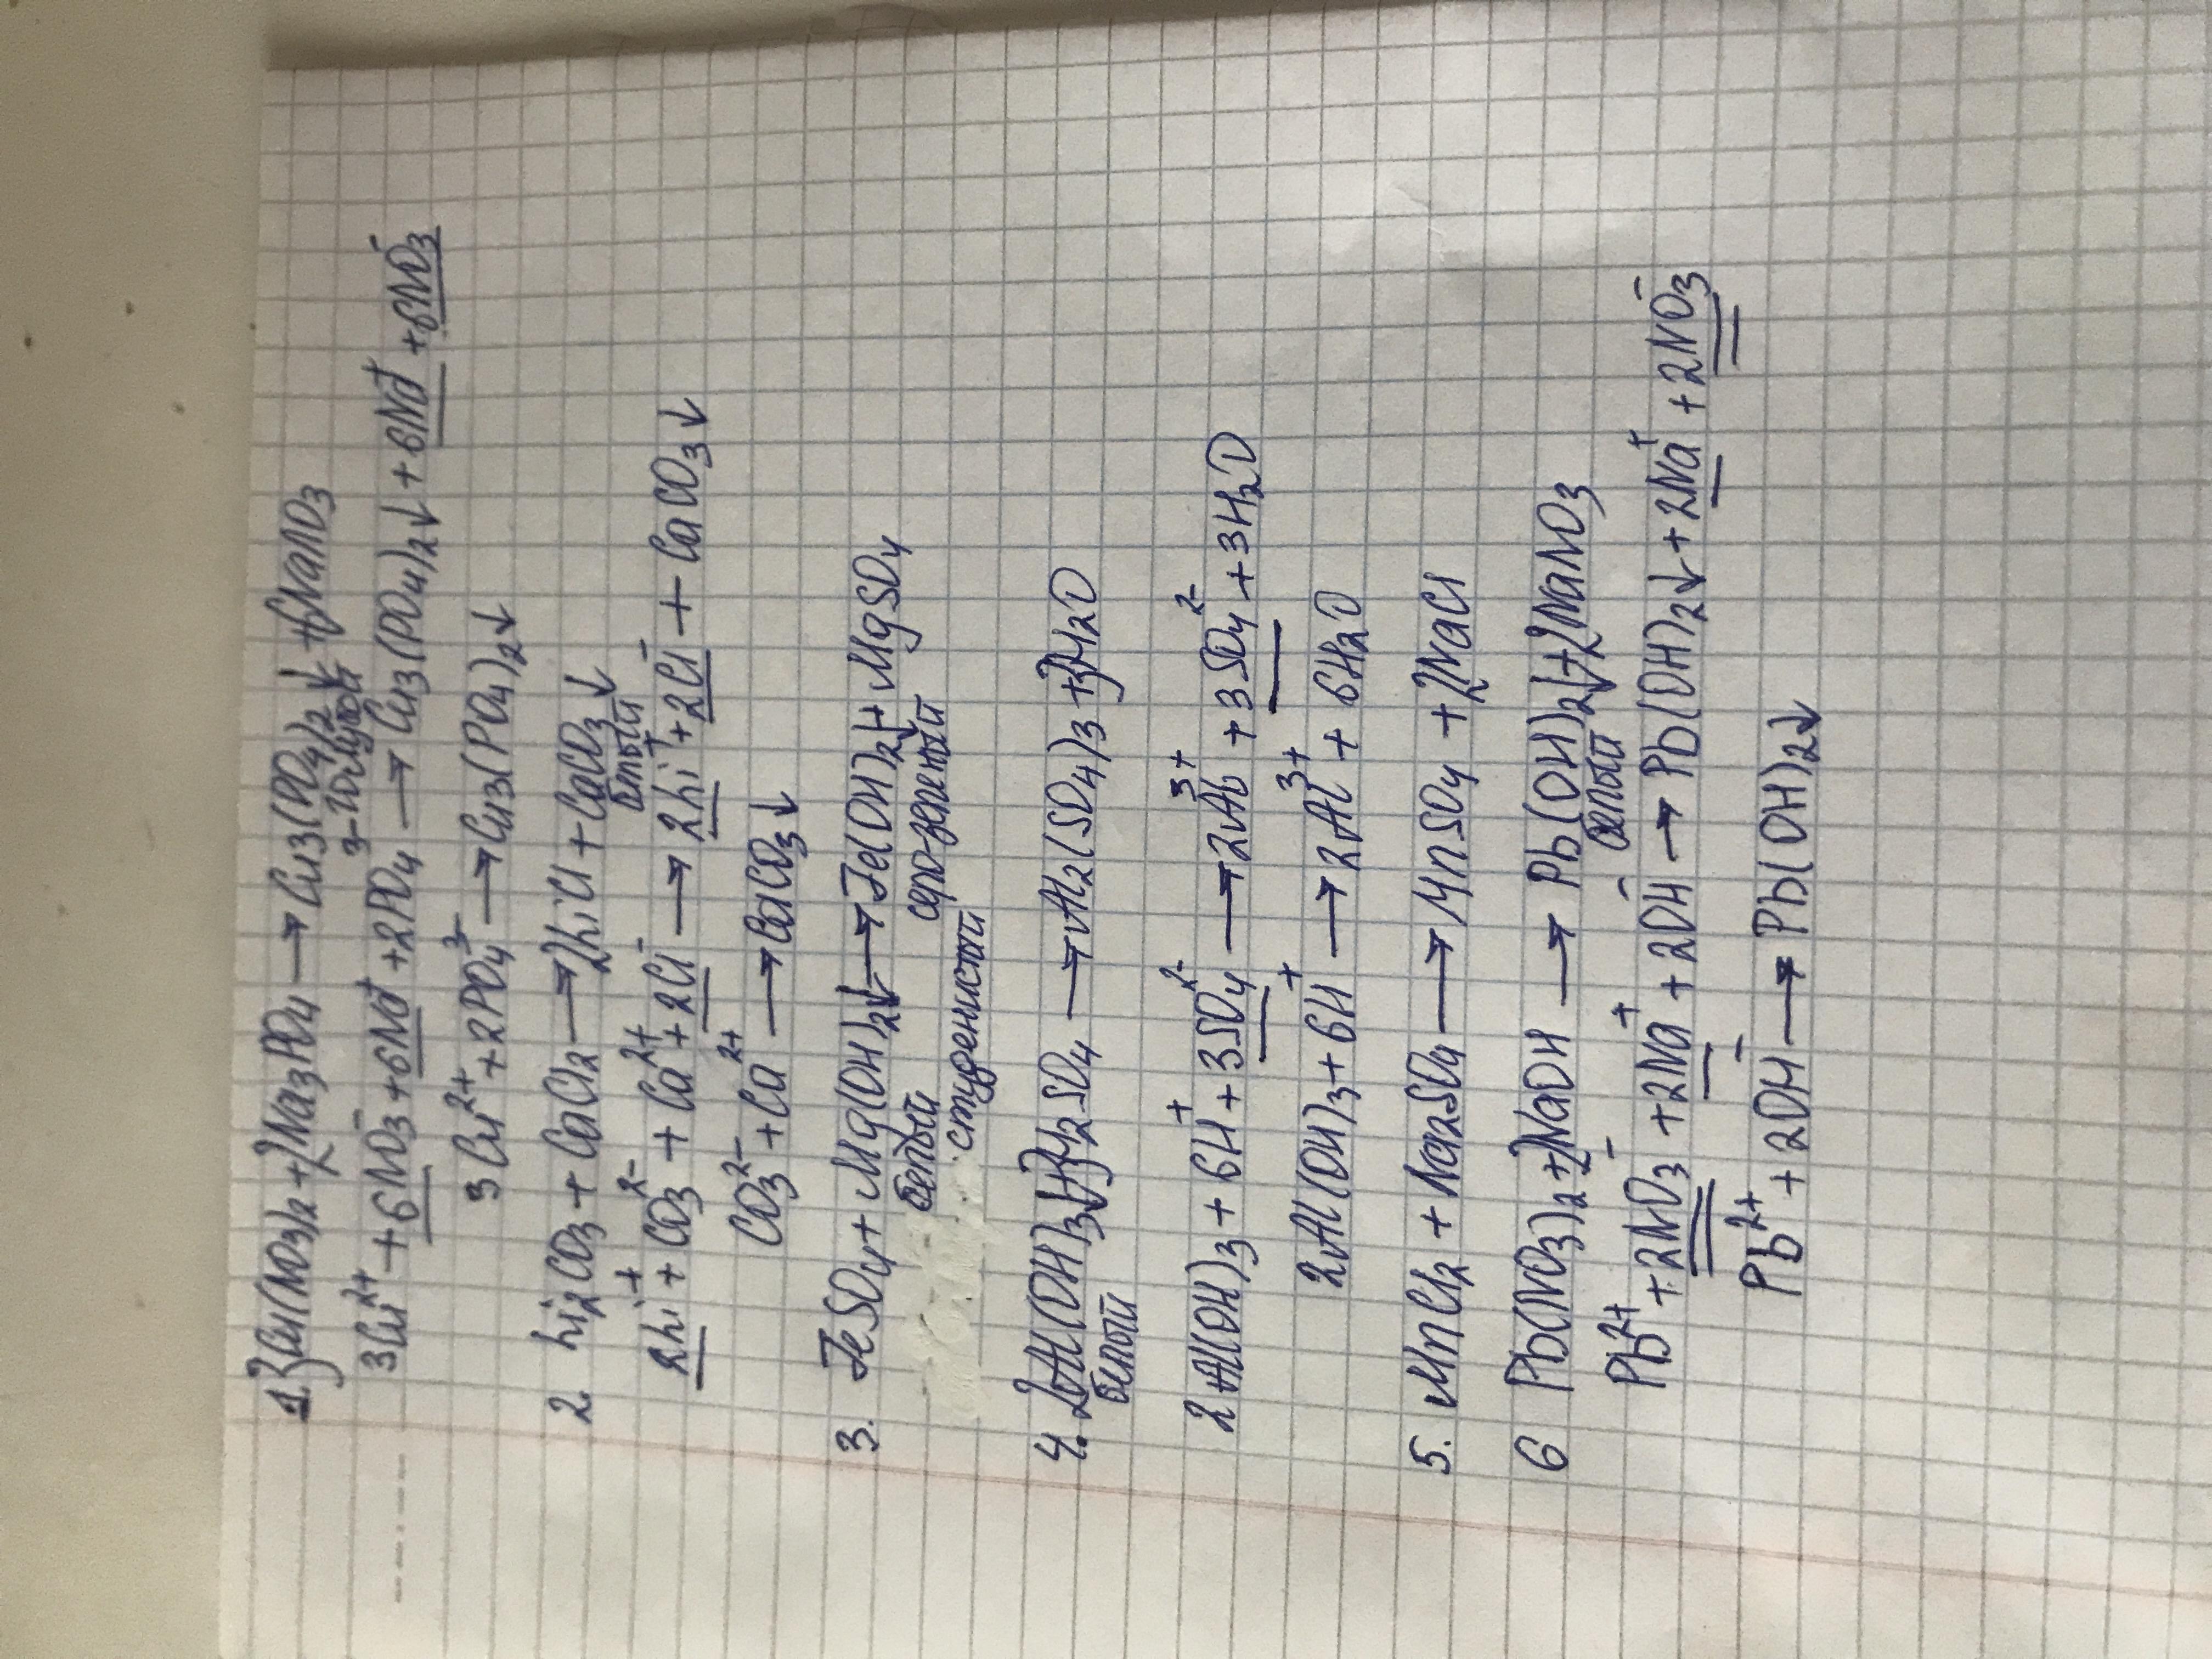 1. 3Cu(NO3)2 + 2Na3PO4 → Cu3(PO4)2↓ + 6NaNO3
голубой
3Cu²⁺ + 6NO3⁻ + 6Na⁺ + 2PO4³⁻ → Cu3(PO4)2↓ + 6Na⁺ + 6NO3⁻
3Cu²⁺ + 2PO4³⁻ → Cu3(PO4)2↓
2. Li2CO3 + CaCl2 → 2LiCl + CaCO3↓
белый
2Li⁺ + CO3²⁻ + Ca²⁺ + 2Cl⁻ → 2Li⁺ + 2Cl⁻ + CaCO3↓
CO3²⁻ + Ca²⁺ → CaCO3↓
3. FeSO4 + Mg(OH)2↓ → Fe(OH)2↓ + MgSO4
белый серо-зеленый
студенистый
4. 2Al(OH)3↓ + 3H2SO4 → Al2(SO4)3 + 3H2O
белый
2Al(OH)3 + 6H⁺ + 3SO4²⁻ → 2Al³⁺ + 3SO4²⁻ + 3H2O
2Al(OH)3 + 6H⁺ → 2Al³⁺ + 6H2O
5. MnCl2 + Na2SO4 → MnSO4 + 2NaCl
6 Pb(NO3)2 + 2NaOH → Pb(OH)2↓ + 2NaNO3
белый
Pb²⁺ + 2NO3⁻ + 2Na⁺ + 2OH⁻ → Pb(OH)2↓ + 2Na⁺ + 2NO3⁻
Pb²⁺ + 2OH⁻ → Pb(OH)2↓